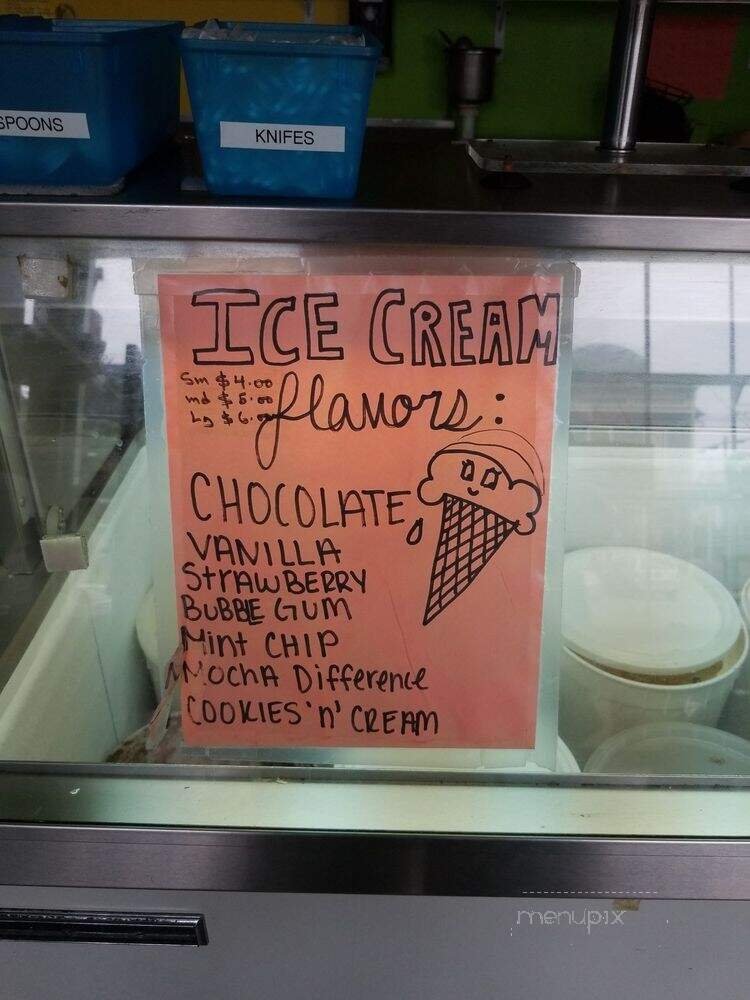 SPOONS
KNIFES
ICE CREAM
Sm $4.00
md $5.00
Lg $6.00
flavors:
CHOCOLATE
VANILLA
StrAWBERRY
BUBBLE GUM
Mint CHIP
MOCHA Difference
COOKIES 'n' CREAM
menupix